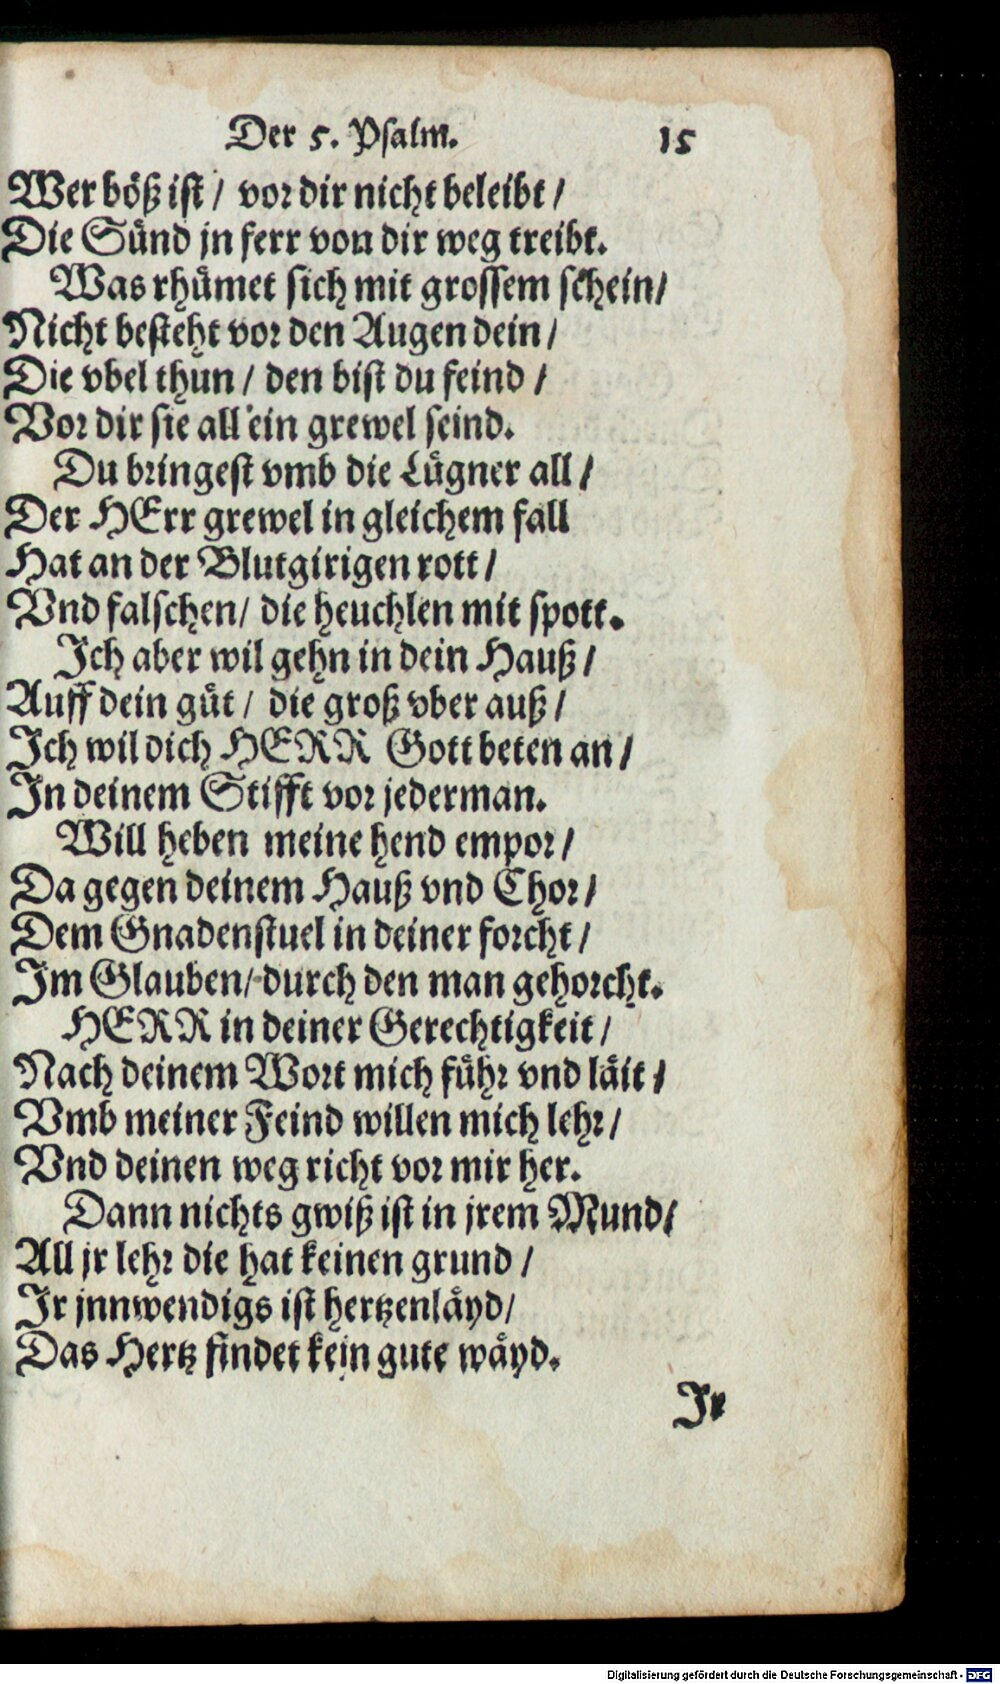 Der 5. Psalm. 15
Wer böß ist / vor dir nicht beleibt /
Die Sünd jn ferr von dir weg treibt.
Was rhümet sich mit grossem schein /
Nicht besteht vor den Augen dein /
Die vbel thun / den bist du feind /
Vor dir sie all ein grewel seind.
Du bringest vmb die Lügner all /
Der HErr grewel in gleichem fall
Hat an der Blutgirigen rott /
Vnd falschen / die heuchlen mit spott.
Ich aber wil gehn in dein Hauß /
Auff dein güt / die groß vber auß /
Ich wil dich HERR Gott beten an /
In deinem Stifft vor jederman.
Will heben meine hend empor /
Da gegen deinem Hauß vnd Chor /
Dem Gnadenstuel in deiner forcht /
Im Glauben / durch den man gehorcht.
HERR in deiner Gerechtigkeit /
Nach deinem Wort mich führ vnd läit /
Vmb meiner Feind willen mich lehr /
Vnd deinen weg richt vor mir her.
Dann nichts gwiß ist in jrem Mund /
All jr lehr die hat keinen grund /
Ir jnnwendigs ist hertzenläyd /
Das Hertz findet kein gute wäyd.
Ir
Digitalisierung gefördert durch die Deutsche Forschungsgemeinschaft - DFG